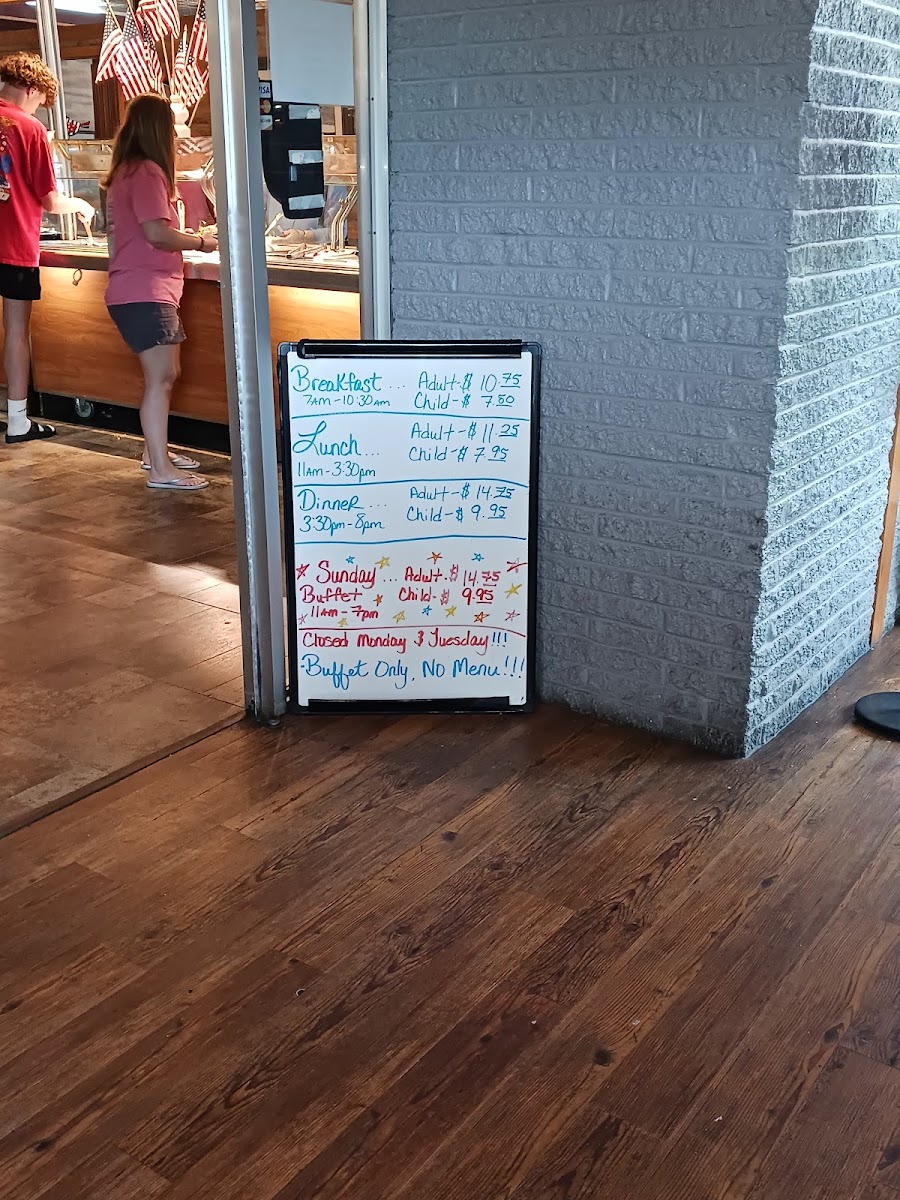 VISA
Breakfast ... Adult-$ 10.75
7AM-10:30AM Child-$ 7.50
Lunch... Adult-$ 11.25
11AM-3:30pm Child-$ 7.95
Dinner ... Adult-$ 14.75
3:30pm-8pm Child-$ 9.95
Sunday ... Adult-$ 14.75
Buffet Child-$ 9.95
11AM-7pm
Closed Monday & Tuesday!!!
Buffet Only, No Menu!!!